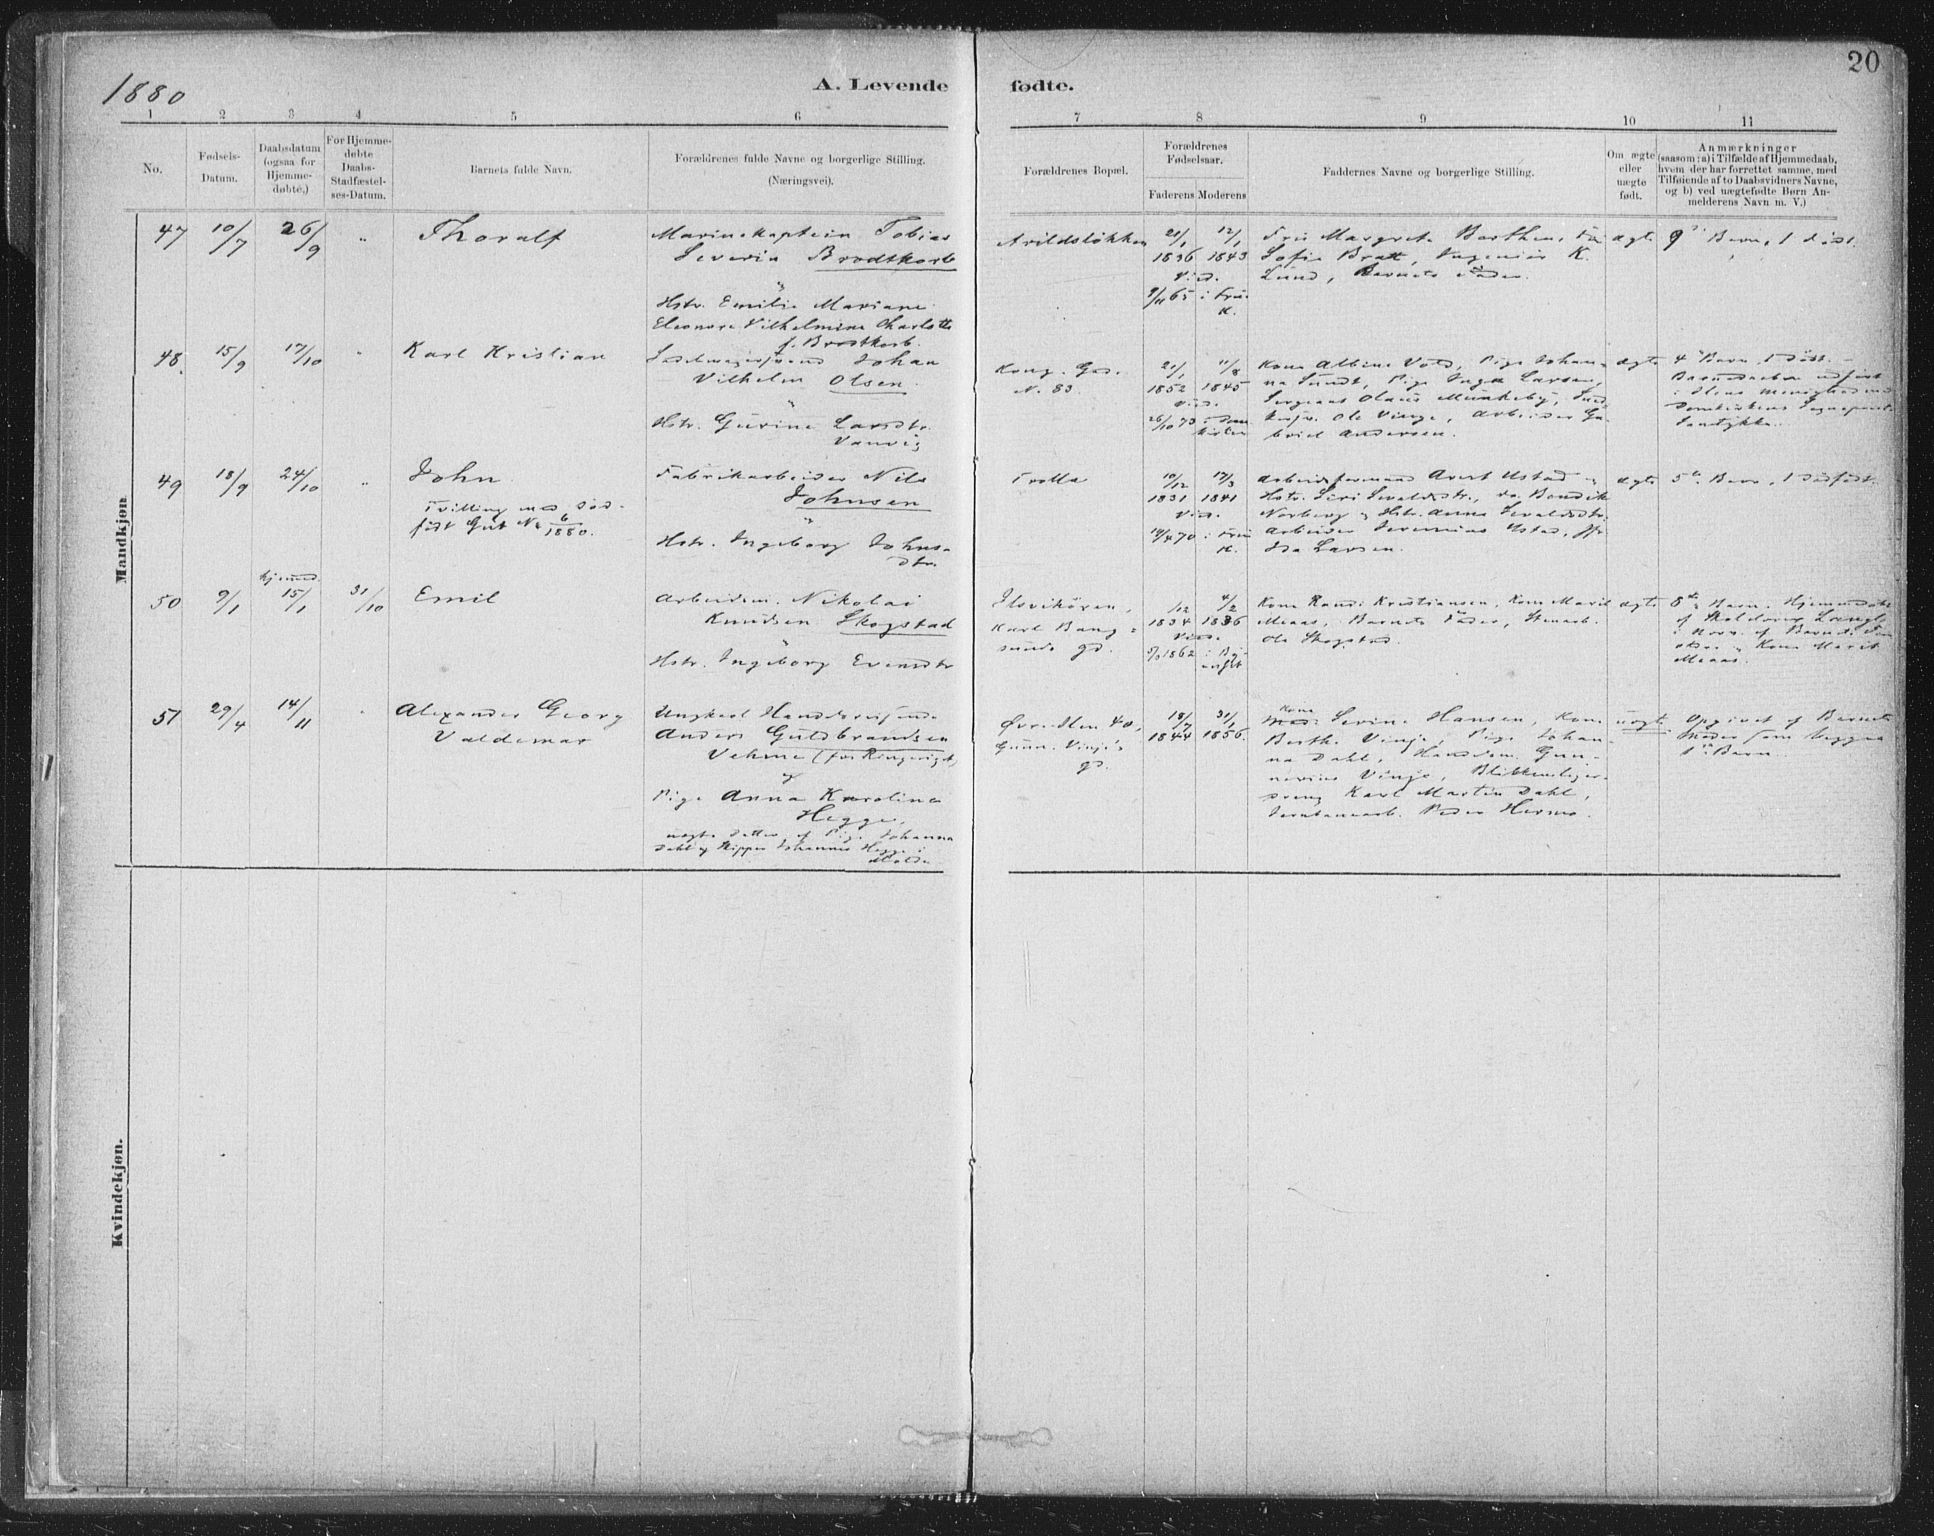 1880
A. Levende fødte.
20
1 2 3 4 5 6 7 8 9 10 11
No.
Fødsels-
Datum.
Daabsdatum
(ogsaa for
Hjemme-
døbte.)
For Hjemme-
døbte
Daabs-
Stadfæstel-
ses-Datum.
Barnets fulde Navn.
Forældrenes fulde Navne og borgerlige Stilling.
(Næringsvei).
Forældrenes Bopæl.
Forældrenes
Fødselsaar.
Faderens Moderens
Faddernes Navne og borgerlige Stilling.
Om ægte
eller
uægte
født.
Anmærkninger
(saasom: a) i Tilfælde af Hjemmedaab,
hvem der har forrettet samme, med
Tilføiende af to Daabsvidners Navne,
og b) ved uægtefødte Børn An-
melderens Navn m. V.)
Mandkjøn
47 10/7 26/9 " Thoralf
Marinekaptein Tobias
Severin Brodtkorb
Hstr. Emilie Mariane
Eleonore Vilhelmine Charlotte
f. Brodtkorb.
Arildsløkken
21/1 12/1
1836 1843
Vied.
9/11 65 i Frue
K.
Fru Margrete Barthen, Frk
Sofie Bratt, Ingeniør K.
Lund, Barnets Fader.
ægte
9de Barn, 1 død.
48. 15/9 17/10 " Karl Kristian
Johan
Vilhelm Olsen.
Hstr. Gurine Larsdtr.
Vanvig
Kong. Gd.
N. 83.
21/1 11/8
1852 1845
Vied.
26/10 73 i Dom
kirken
Kone Albine Vold, Pige Johan-
na Sundt, Pige Inga Larsen,
Sergeant Olaus Munkeby,
Ole Vinge, Arbeider Ga-
briel Andersen.
ægte
4de Barn, 1 død. –
Barnedaaben udført
i Ilens Menighed med
Domkirkens Sognepræsts
Samtykke.
49 18/9 24/10 " John
Tvilling med død-
født Gut No 6/1880.
Fabrikarbeider Nils
Johnsen
&
Hstr. Ingeborg Johns-
dtr.
Trolla
10/12 17/3
1831 1841
Vied.
70 i Frue
K.
Arbeidsformand Ustad &
Hstr. Siri Sevaldsdtr.,
Norberg & Hstr. Anna Sevaldsdtr.
Arbeider Jeremias Ustad, Jfr
Ida Larsen.
ægte
5te Barn, 1 dødfødt.
50 9/1 hjemmed. 15/1 31/10 Emil
Arbeidsm. Nikolai
Knudsen Skogstad
&
Hstr. Ingeborg Evensdtr
Ilsvikøren,
Karl Bang-
sunds gd.
/12 4/2
1834 1836
Vied.
1862 i By-
Kone Randi Kristiansen, Kone Marit
Meaas, Barnets Fader, Stenarb.
Ole Skogstad.
ægte
8de Barn. Hjemmedøbt
af
i Nærv. af Barnets For-
ældre & Kone Marit
Meaas.
51 29/4 14/11 " Alexander Georg
Valdemar
Ungkarl Handelsreisende
Anders Guldbrandsen
Vehme (fra Ringeriget)
og
Pige Anna Karoline
Hegge,
uægte Datter af Pige Johanna
Dahl og Skipper Johannes Hegge i
Molde
Øvre Ilen 40,
Gunn. Vinje's
gd.
18/7 31/1
1844 1856.
Kone
Serine Hansen, Kone
Berthe Vinje, Pige Johan-
na Dahl, Handelsm. Gun-
nerius Vinje, Blikkenslager-
dreng Karl Martin Dahl,
Jernbanearb. Peder Hermo.
uægte
Opgivet af Barnets
Moder som begges
1ste Barn.
Kvindekjøn.